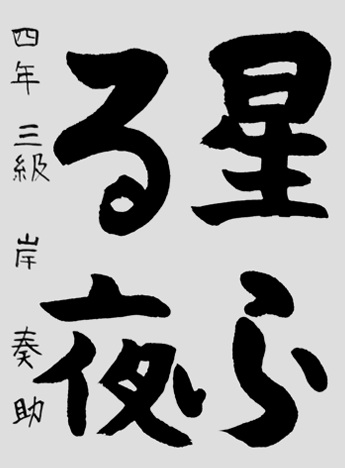 星ふ
る夜
四年 三級 岸 奏助